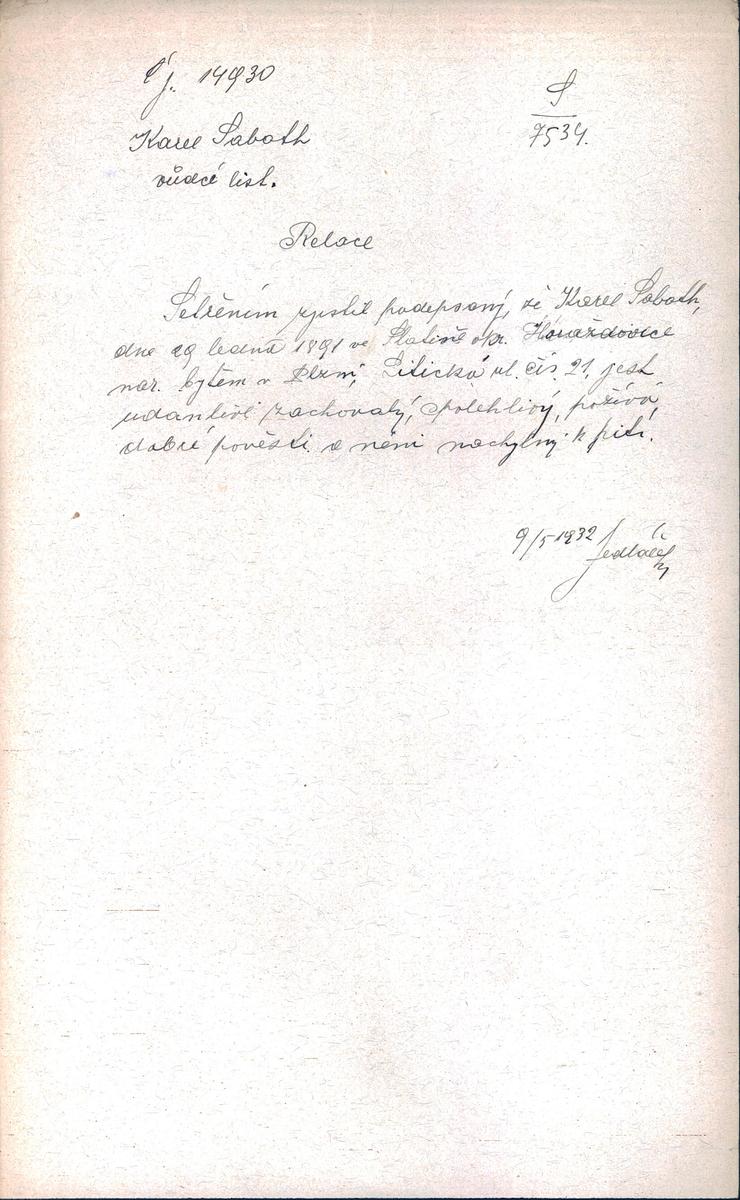 Čj. 14930
S
7534.
Karel Šabath
vůdčí list.
Relace
Šetřením zjistil podepsaný, že Karel Šabath,
dne 29 ledna 1891 ve Slatině okr. Horažďovice
nar. bytem v Plzni, Litická ul. čís. 21, jest
zachovalý, spolehlivý, požívá
dobré pověsti a není nachylný k pití.
9/5 1932 Jedlička